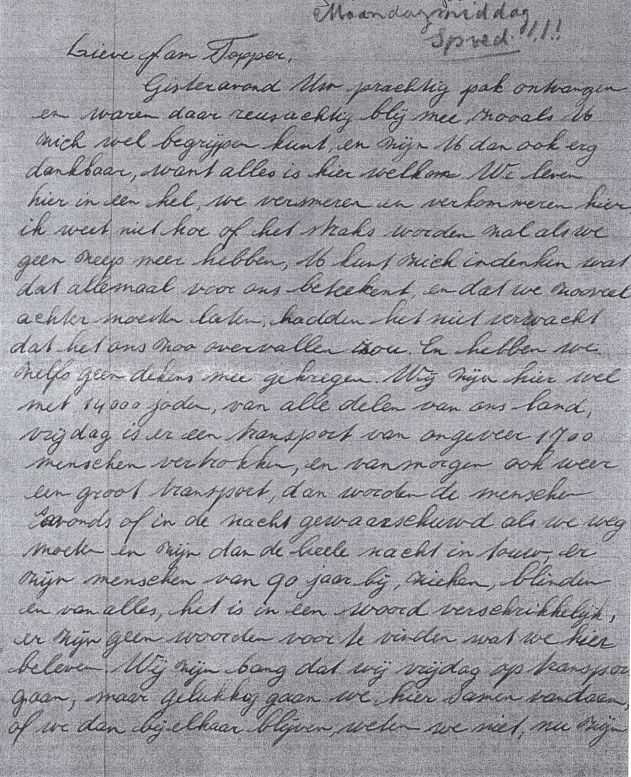 Maandagmiddag
Spoed!!!
Lieve fam Topper,
Gisteravond Uw prachtig pak ontvangen
en waren daar reusachtig blij mee, zooals U
zich wel begrijpen kunt, en zijn U dan ook erg
dankbaar, want alles is hier welkom. We leven
hier in een hel, we versmeren en verkommeren hier
ik weet niet hoe of het straks worden zal als we
geen zeep meer hebben, U kunt zich indenken wat
dat allemaal voor ons beteekent, en dat we zooveel
achter moeten laten, hadden het niet verwacht
dat het ons zoo overvallen zou. En hebben we
zelfs geen dekens mee gekregen. Wij zijn hier wel
met 14000 joden, van alle delen van ons land,
vrijdag is er een transport van ongeveer 1700
menschen vertrokken, en vanmorgen ook weer
een groot transport, dan worden de menschen
s'avonds of in de nacht gewaarschuwd als we weg
moeten en zijn dan de heele nacht in touw, er
zijn menschen van 90 jaar bij, zieken, blinden
en van alles, het is in een woord verschrikkelijk,
er zijn geen woorden voor te vinden wat we hier
beleven. Wij zijn bang dat wij vrijdag op transport
gaan, maar gelukkig gaan we hier samen vandaan,
of we dan bijelkaar blijven, weten we niet, nu zijn